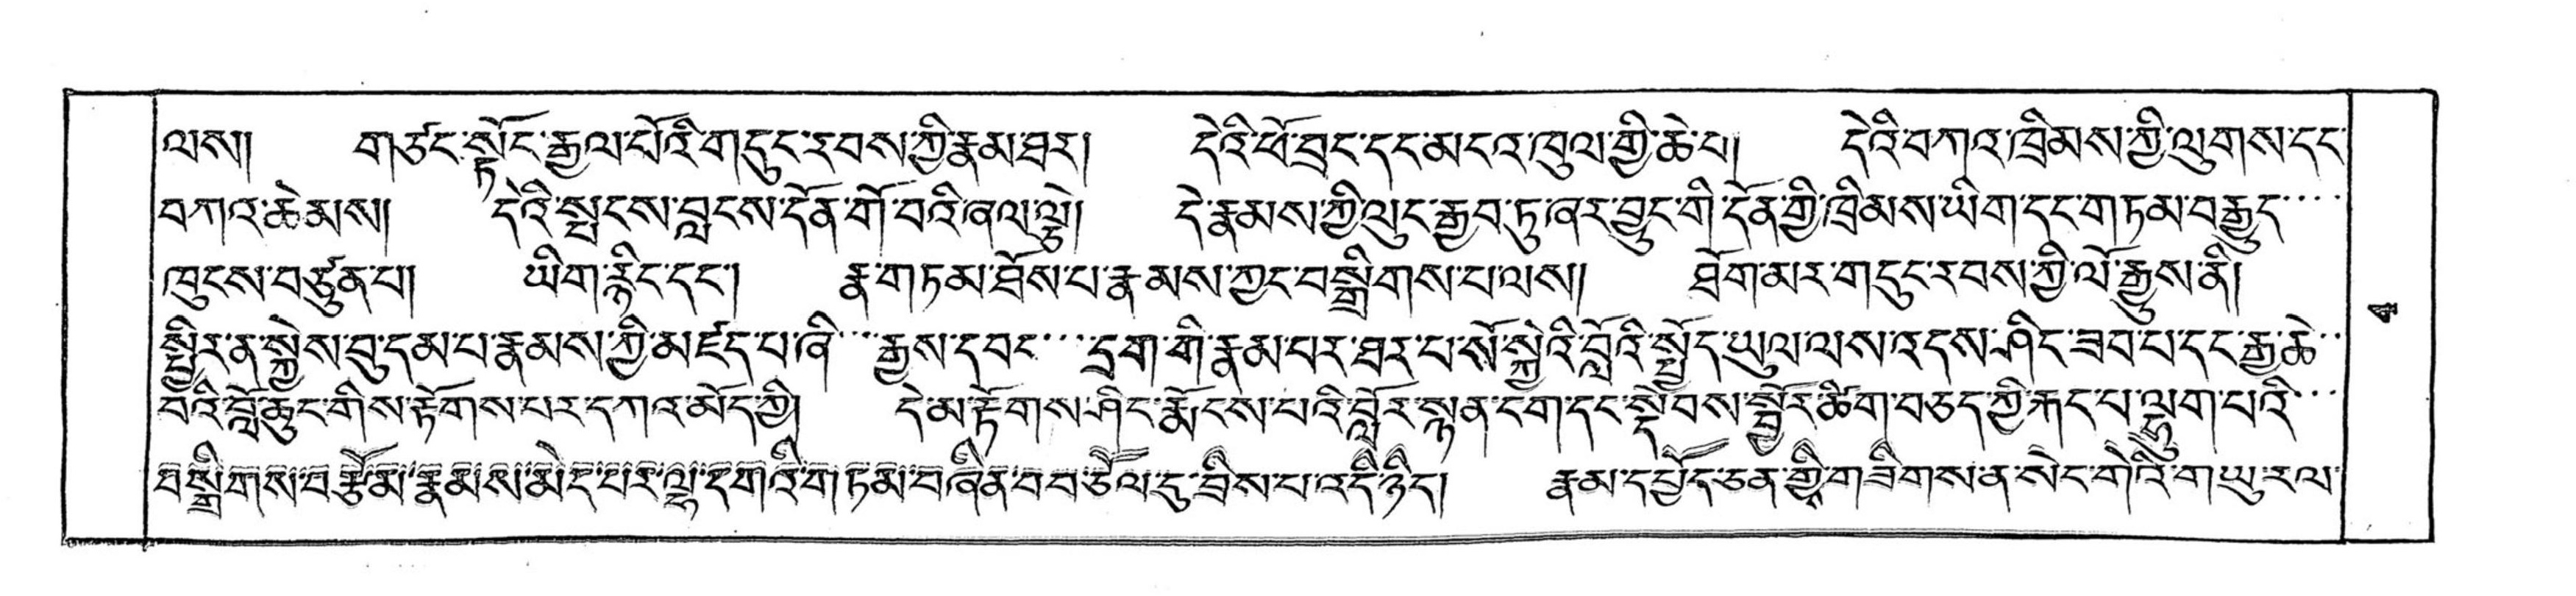 ལས།། གཙང་སྟོད་རྒྱལ་པོའི་གདུང་རབས་ཀྱི་རྣམ་ཐར། དེའི་ཕོ་བྲང་དང་མངའ་ཁུལ་གྱི་ཆེ་བ། དེའི་བཀའ་ཁྲིམས་ཀྱི་ལུགས་དང་
བཀའ་ཆེམས། དེའི་སྤངས་བླངས་དོན་གོ་བའི་ཞལ་ལྟ། དེ་རྣམས་ཀྱི་ལུང་རྒྱབ་ཏུ་ཞར་བྱུང་གི་དོན་གྱི་ཁྲིམས་ཡིག་དང་གཏམ་བརྒྱུད་
ཁུངས་བཙུན་པ། ཡིག་རྙིང་དང་། རྣ་གཏམ་ཐོས་པ་རྣམས་ཀྱང་བསྒྲིགས་པ་ལས།། ཐོག་མར་གདུང་རབས་ཀྱི་ལོ་རྒྱུས་ནི།
སྤྱིར་ན་སྐྱེས་བུ་དམ་པ་རྣམས་ཀྱི་མཛད་པ་ནི་རྒྱས་དབང་དྲག་གི་རྣམ་པར་ཐར་པ་སོ་སྐྱེའི་བློའི་སྤྱོད་ཡུལ་ལས་འདས་ཤིང་ཟབ་པ་དང་རྒྱ་ཆེ་
བའི་བློ་ཆུང་གིས་རྟོགས་པར་དཀའ་མོད་ཀྱི། དེ་མ་རྟོགས་ཤིང་རྨོངས་པའི་བློར་སྙན་ངག་དང་སྡེབས་སྦྱོར་ཚིག་བཅད་ཀྱི་རྐང་པ་ལྷུག་པའི་
བསྒྲིགས་བརྩོམ་རྣམས་མེད་པར་ལྷ་དགའི་གཏམ་བཞིན་བབ་ཅོལ་དུ་བྲིས་པ་འདི་ཉིད། རྣམ་དཔྱོད་ཅན་གྱི་གཟིགས་ན་སེང་གེའི་གཡུ་རལ་